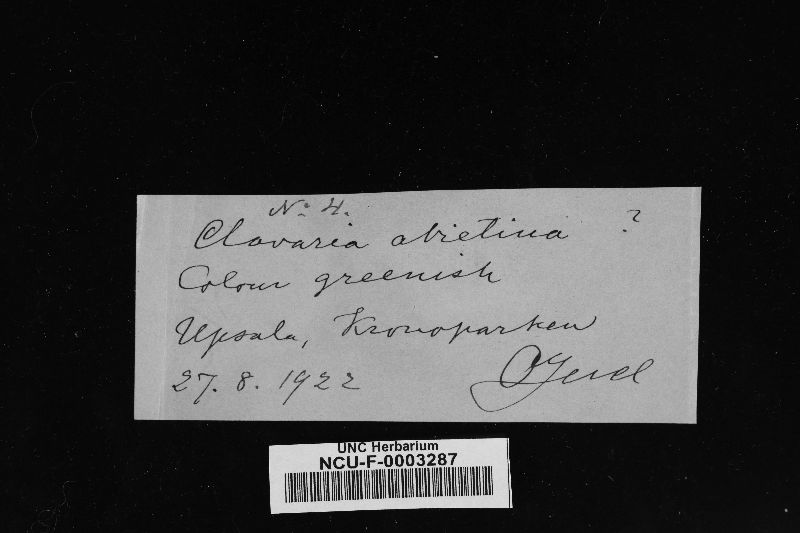 No 4.
Clavaria abietina ?
Colour greenish
Upsala, Kronoparken
27. 8. 1922 OJuel
UNC Herbarium
NCU-F-0003287